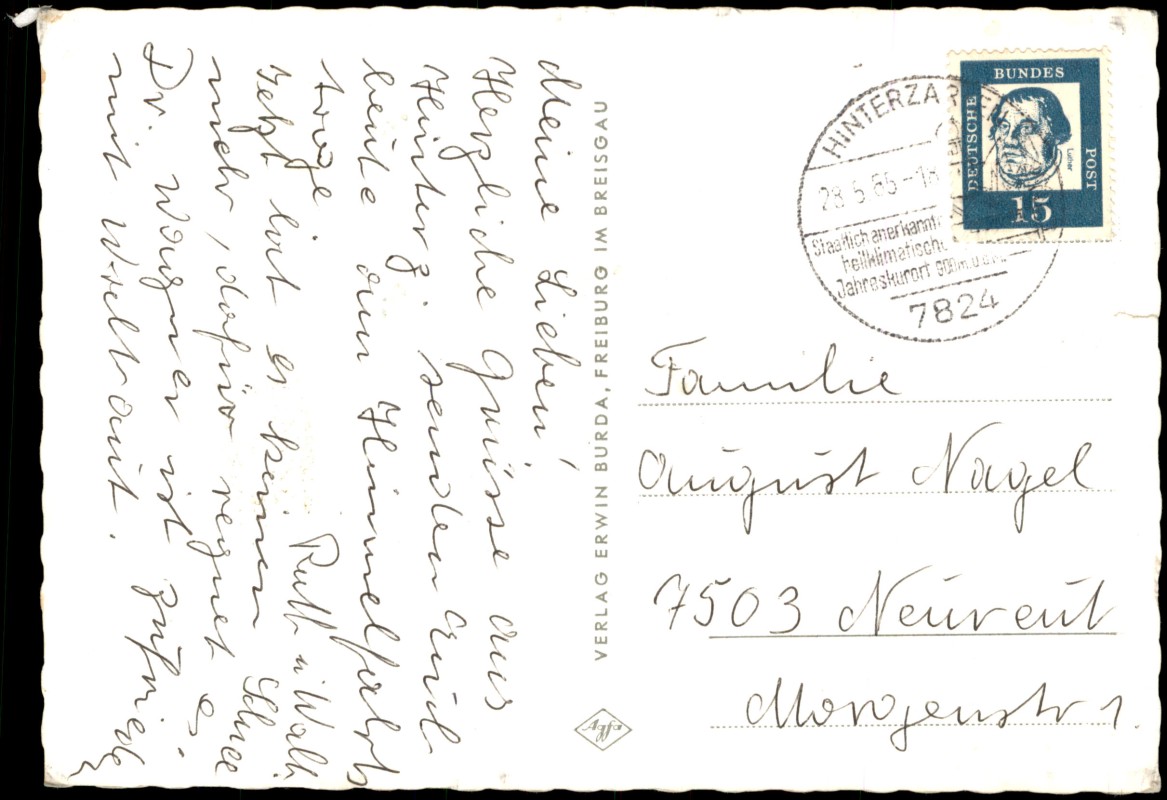 Meine Lieben!
Herzliche Grüsse aus
Hinterz. senden Euch
heute am Himmelfahrts
tage Ruth u. Walli
Jetzt hat es keinen Schnee
mehr, dafür regnet es.
Dr. Wagner ist zufrieden
mit Weltraut.
VERLAG ERWIN BURDA, FREIBURG IM BREISGAU
Agfa
HINTERZARTEN
28.5.65-18
Staatlich anerkannt
heilklimatischer
Jahreskurort 900m.ü.d.M.
7824
DEUTSCHE
BUNDES
POST
Luther
15
Familie
August Nagel
7503 Neureut
Morgenstr 1.